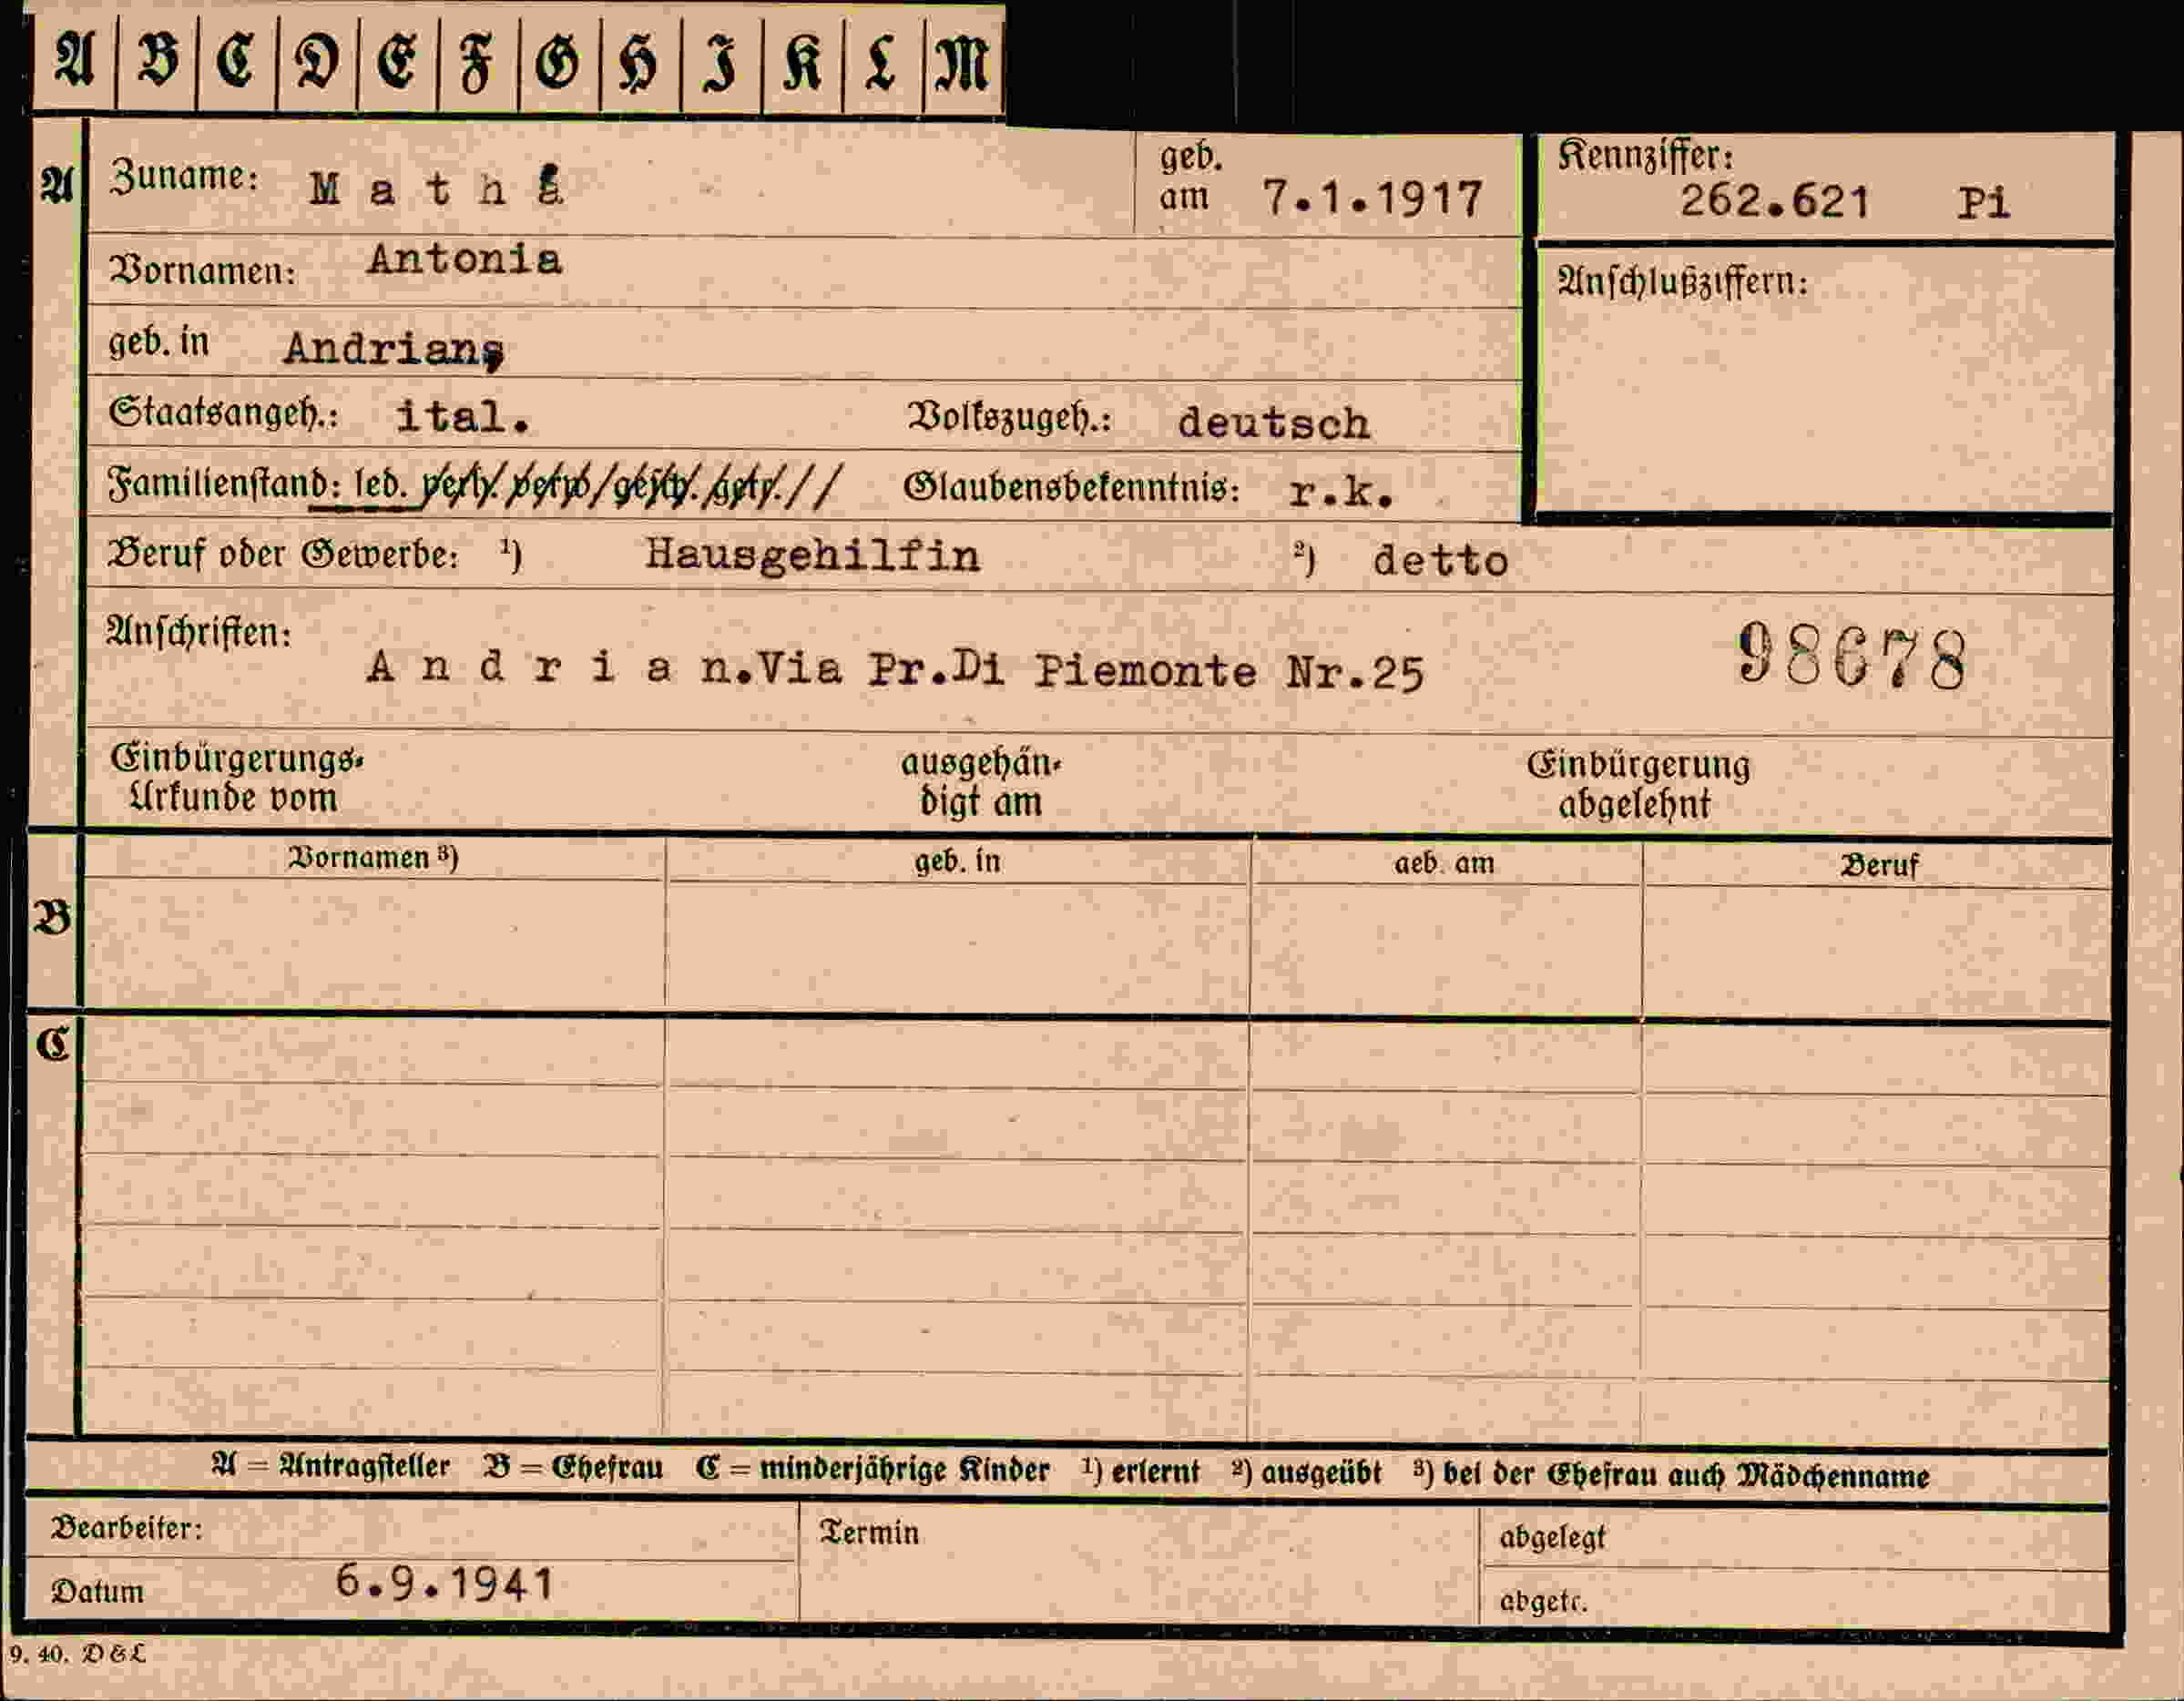 A B C D E F G H I K L M
A Zuname: M a t h à geb. am 7.1.1917 Kennziffer: 262.621 Pi
Vornamen: Antonia Anschlußziffern:
geb. in Andrian
Staatsangeh.: ital. Volkszugeh.: deutsch
Familienstand: led. verh. verw. gesch. getr. Glaubensbekenntnis: r.k.
Beruf oder Gewerbe: ¹) Hausgehilfin ²) detto
Anschriften: A n d r i a n.Via Pr.Di Piemonte Nr.25 98678
Einbürgerungs-Urkunde vom ausgehändigt am Einbürgerung abgelehnt
Vornamen ³) geb. in geb. am Beruf
B
C
A = Antragsteller B = Ehefrau C = minderjährige Kinder ¹) erlernt ²) ausgeübt ³) bei der Ehefrau auch Mädchenname
Bearbeiter: Termin abgelegt
Datum 6.9.1941 abgetr.
9. 40. D&L